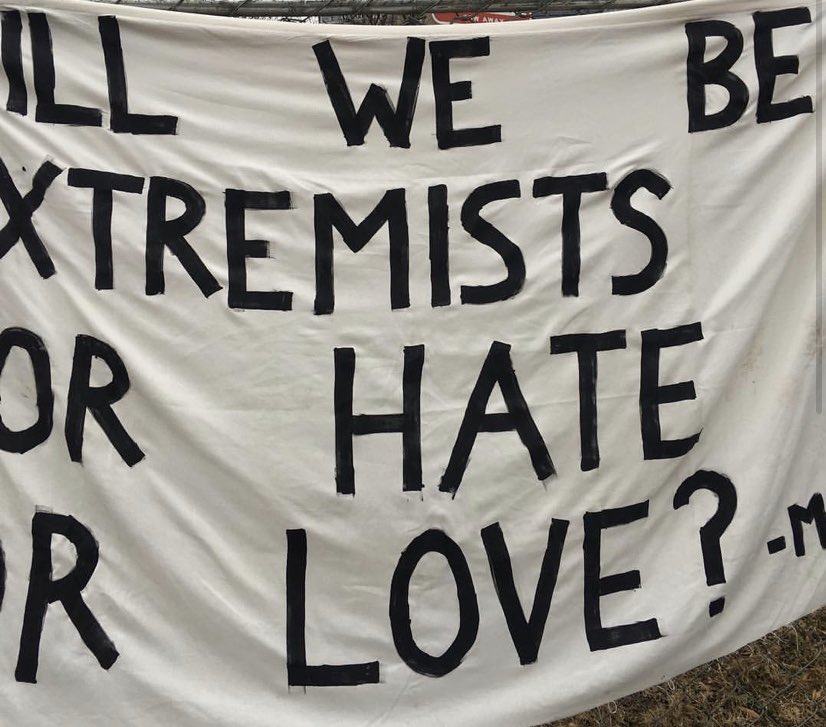 AWAY
ILL WE BE
XTREMISTS
OR HATE
R LOVE? -M